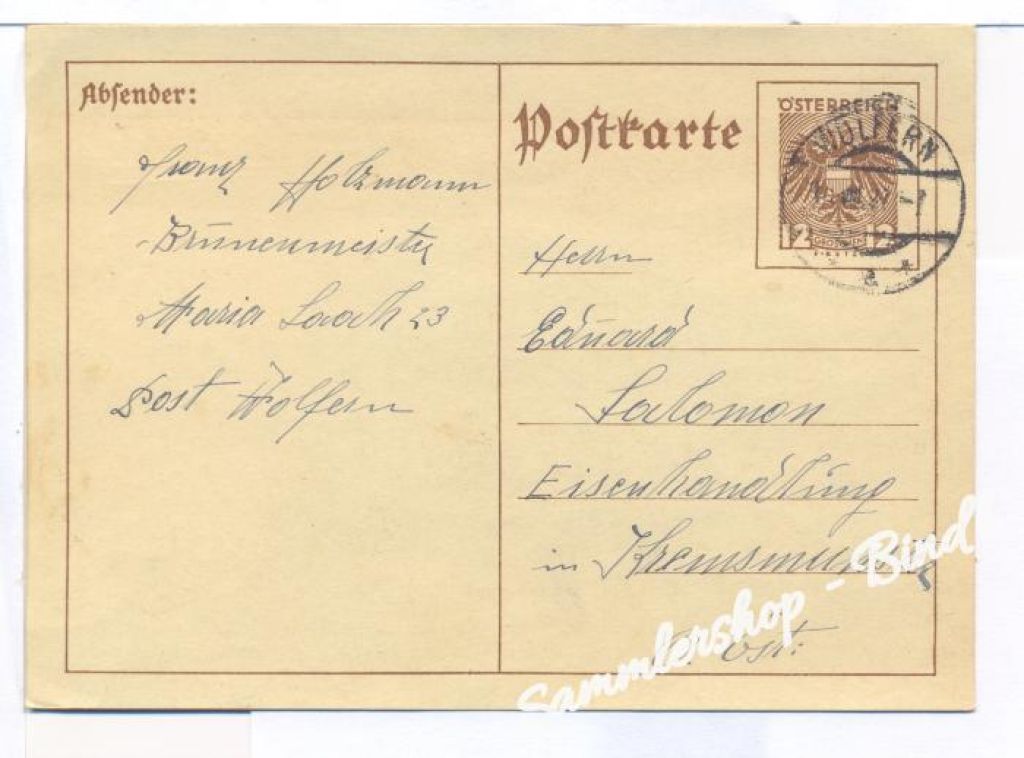 Absender:
Franz Holzmann
Brunenmeister
Maria Laach 23
Post Wolfern
Postkarte
ÖSTERREICH
12 GROSCHEN 12
WOLFERN
Herrn
Eduard
Salomon
Eisenhandlung
in Kremsmünster
Öst:
Sammlershop - Bind